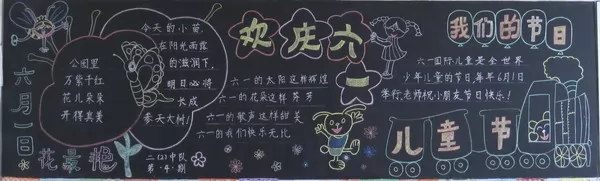 六月一日
花最艳
公园里
万紫千红
花儿朵朵
开得真美
今天的小苗,
在阳光雨露
的滋润下,
明日必将
长成
参天大树!
二(2)中队
第·4·期
欢庆六一
六一的太阳这样辉煌
六一的花朵这样芬芳
六一的歌声这样甜美
六一的我们快乐无比
我们的节日
六一国际儿童是全世界
少年儿童的节日,每年6月1日
举行,老师祝小朋友节日快乐!
儿童节